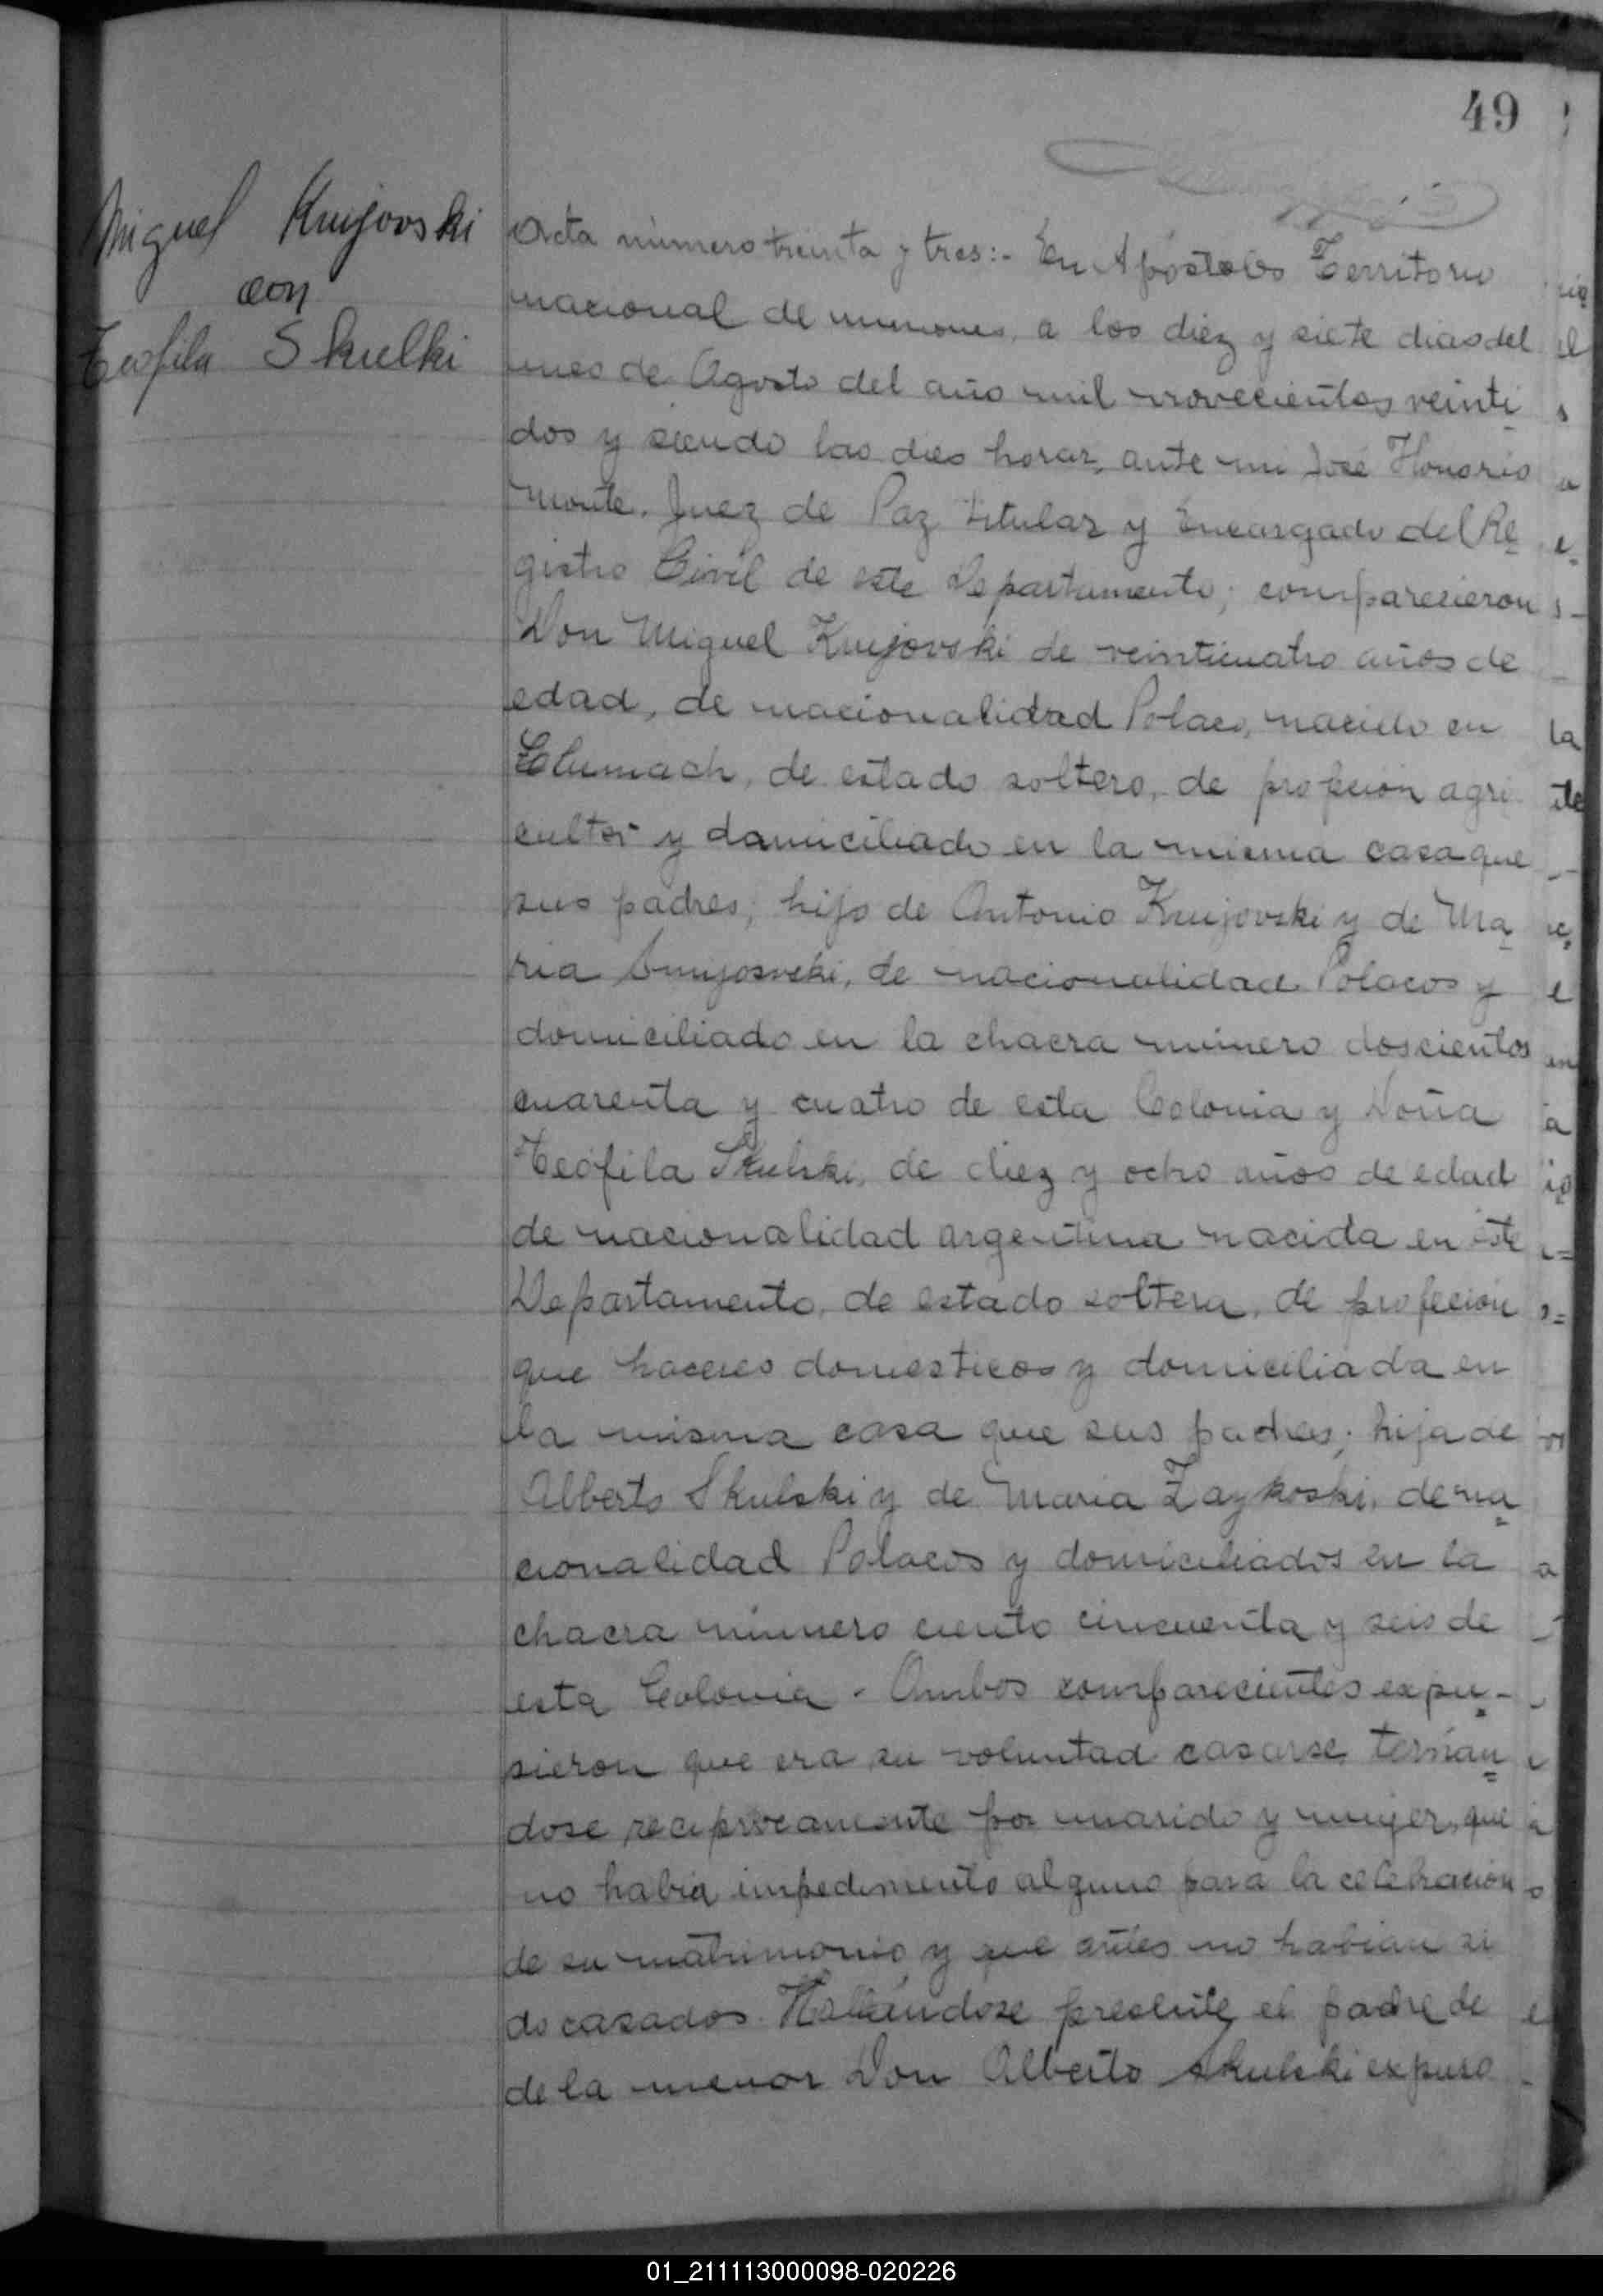 49
Miguel Knijovski
con
Teofila Skulki
Acta número treinta y tres:- En Apóstoles Territorio
nacional de misiones, a los diez y siete dias del
mes de Agosto del año mil novecientos veinti
dos y siendo las dies horas, ante mi José Honorio
Monte, Juez de Paz titular y Encargado del Re
gistro Civil de este Departamento; comparecieron
Don Miguel Knijovski de veinticuatro años de
edad, de nacionalidad Polaco, nacido en
Tlumach, de estado soltero, de profecion agri
cultor y damiciliado en la misma casa que
sus padres; hijo de Antonio Knijovski y de Ma
ria de nacionalidad Polacos y
domiciliado en la chacra número doscientos
cuarenta y cuatro de esta Colonia y Doña
Teófila Skulski, de diez y ocho años de edad
de nacionalidad argentina nacida en este
Departamento, de estado soltera, de profecion
que haceres domesticos y domiciliada en
la misma casa que sus padres; hija de
Alberto Skulski y de Maria Zaykoski, de na
cionalidad Polacos y domiciliados en la
chacra número ciento cincuenta y seis de
esta Colonia. Ambos comparecientes expu-
sieron que era su voluntad casarse, tornan
dose reciprocamente por marido y mujer, que
no habia impedimento alguno para la celebracion
de su matrimonio y que antes no habian si
do casados. Hallándose presente el padre de
de la menor Don Alberto Skulski expuso
01_211113000098-020226